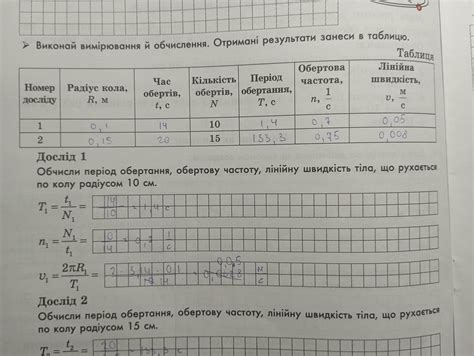 ➤ Виконай вимірювання й обчислення. Отримані результати занеси в таблицю.
Таблиця
Номер досліду Радіус кола, R, м Час обертів, t, с Кількість обертів, N Період обертання, T, с Обертова частота, n, 1/с Лінійна швидкість, υ, м/с
1 0,1 14 10 1,4 0,7 0,05
2 0,15 20 15 133,3 0,75 0,008
Дослід 1
Обчисли період обертання, обертову частоту, лінійну швидкість тіла, що рухається
по колу радіусом 10 см.
T₁ = t₁/N₁ = 14/10 = 1,4 с
n₁ = N₁/t₁ = 10/14 = 0,7 1/с
υ₁ = 2πR₁/T₁ = 2 · 3,14 · 01 = 0,05 м/с
Дослід 2
Обчисли період обертання, обертову частоту, лінійну швидкість тіла, що рухається
по колу радіусом 15 см.
t₂ 20 = 133,3 с